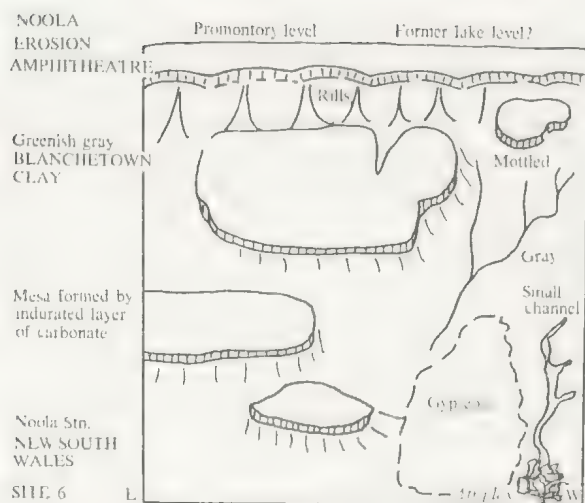 NOOLA
EROSION
AMPHITHEATRE
Promontory level
Former lake level?
Rills
Greenish gray
BLANCHETOWN
CLAY
Mottled
Gray
Mesa formed by
indurated layer
of carbonate
Small
channel
Noola Stn.
NEW SOUTH
WALES
SITE 6
E
W